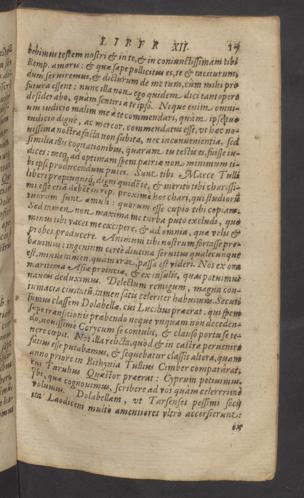 LIBER XII.
habuimus testem nostri & in te, & in coniunctissimam tibi
Remp. amoris: & quæ sæpe pollicitus es, te & tacitũ
dum serviremus, & dicturum de me tum, cùm mihi pro
futura essent: nunc illa non ego quidem dici tantopere
desiderabo, quàm sentiri à te ipso. Neque enim omni-
um iudicio malim me à te commendari, quàm ipse tuo
iudicio digne, ac mereor, commendatus esse. vt hæc no-
uissima nostra facta non subita, nec inconuenientia, sed
similia illis cogitationibus, quarum tu testis es, fuisse iu-
dices: meq; ad optimam spem patriæ non minimum ti-
bi ipsi producendum putes. Sunt tibi Marce Tulli
liberi propinquiq; digni quidẽ te, & merito tibi charissi-
mi esse etiã debẽt in rep. proximè hos chari, qui studiorũ
tuorum sunt æmuli: quorum esse cupio tibi copiam.
Sed tamen non maxima me turba puto excludi, quo
minus tibi vacet me excipere, & ad omnia, quæ velis &
probes producere. Animum tibi nostrum fortasse pro-
bauimus: ingenium certè diutina seruitus qualecunque
est, minus tamen quàm erat, passa est videri. Nos ex ora
maritima Asiæ prouinciæ, & ex insulis, quas potuimus
naueis deduximus. Delectum remigum, magna con-
tumacia ciuitatũ, tamen satis celeriter habuimus. Secuti
sumus classem Dolabellæ, cui Lucilius præerat. qui spem
sæpe transitionis præbendo neque vnquam non deceden-
do, nouissimè Corycum se contulit, & clauso portu se te-
nere cœpit. Nos illa relicta, quòd & in castra peruenire
satius esse putabamus, & sequebatur classis altera, quam
anno priore in Bithynia Tullius Cimber comparârat,
Turulius Quæstor præerat: Cyprum petiuimus.
Ibi, quæ cognouimus, scribere ad vos quàm celerrimè
voluimus. Dolabellam, vt Tarsenses pessimi socij
ita Laodiceni multò amentiores vltrò accersierunt:
ex